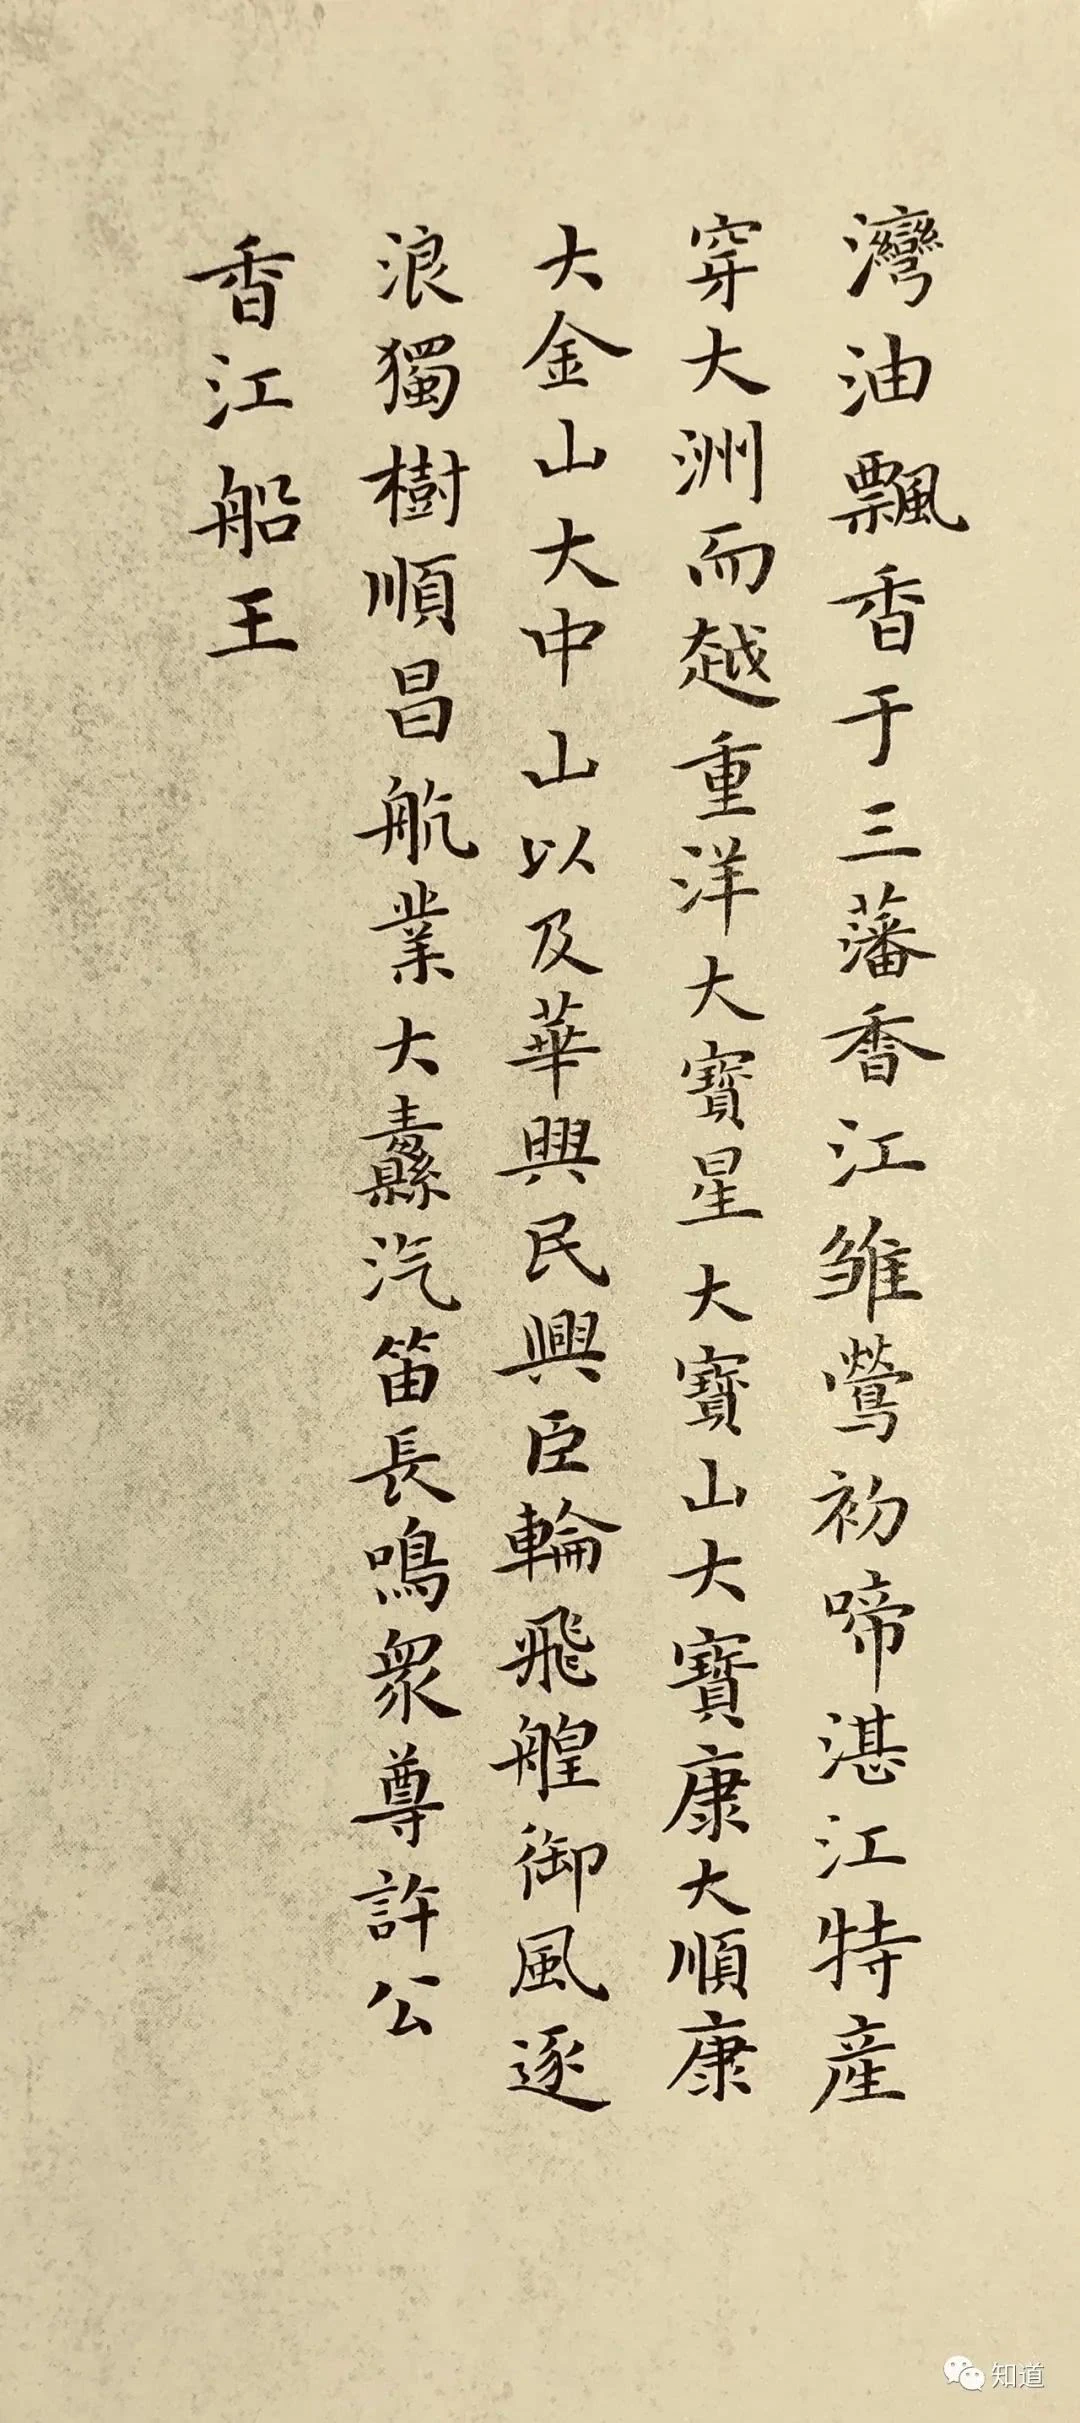 灣油飄香于三藩香江雏鶯初啼湛江特産
穿大洲而越重洋大寳星大寳山大寳康大順康
大金山大中山以及華興民興臣輪飛艎御風逐
浪獨樹順昌航業大纛汽笛長鳴衆尊許公
香江船王
知道